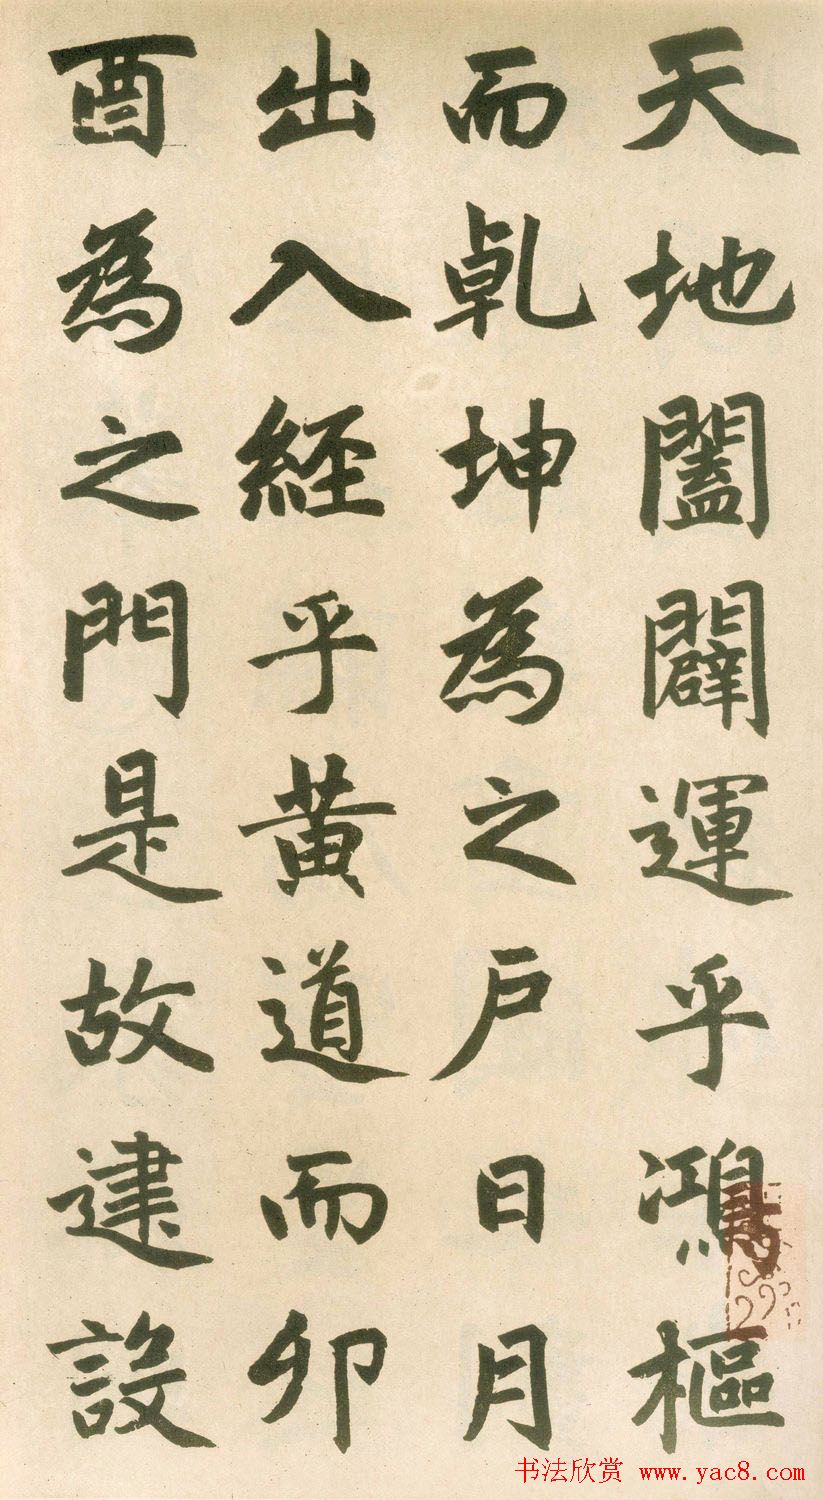 天地闔闢運乎鴻樞
而乹坤為之户日月
出入經乎黄道而卯
酉為之門是故建設
书法欣赏 www.yac8.com